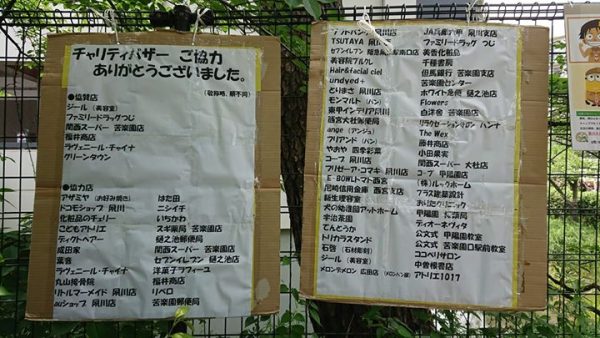 チャリティバザー ご協力
ありがとうございました。
(敬称略、順不同)
●協賛店
ジール(美容室)
ファミリードラッグつじ
関西スーパー 苦楽園店
福井商店
ラヴェニール・チャイナ
グリーンタウン
●協力店
アザミヤ(お好み焼き)
ドコモショップ 夙川
化粧品のチェリー
こどもアトリエ
ディクトヘアー
成田家
葉香
ラヴェニール・チャイナ
丸山接骨院
リトルマーメイド 夙川店
auショップ 夙川店
はた田
ニシイチ
いちかわ
スギ薬局 苦楽園店
樋之池郵便局
関西スーパー 苦楽園店
セブンイレブン 樋之池店
洋菓子ラフィーユ
福井商店
リベロ
苦楽園郵便局
TSUTAYA 夙川
美容院プルクレ
Hair&facial ciel
undyed+
とりまさ 夙川店
モンマルト(パン)
東甲インテリア夙川
西宮大社郵便局
ange(アンジュ)
フリアンド(パン)
やおや 四季彩葉
コープ 夙川店
フリーゼア・コマキ 夙川店
E-BOWLトマト西宮
尼崎信用金庫 西宮支店
犬の幼稚園アットホーム
宇治茶園
てんとうか
トリカラスタンド
石啓(石材彫刻)
ジール(美容室)
メロンデメロン 広田店(メロンパン屋)
JA兵庫六甲 夙川支店
ファミリードラッグ つじ
美香化粧品
千種書房
但馬銀行 苦楽園支店
苦楽園センター
ホワイト急便 樋之池店
Flowers
白洋舎 苦楽園店
リラクゼーションサロン ハンナ
The Wax
藤井商店
小田果実
関西スーパー 大社店
コープ 甲陽園店
(株)ルックホーム
プラス建築設計
甲陽園 薬局
ディオーネヴィタ
公文式 甲陽園教室
公文式 苦楽園口駅前教室
ココペリサロン
中曽根書店
アトリエ1017